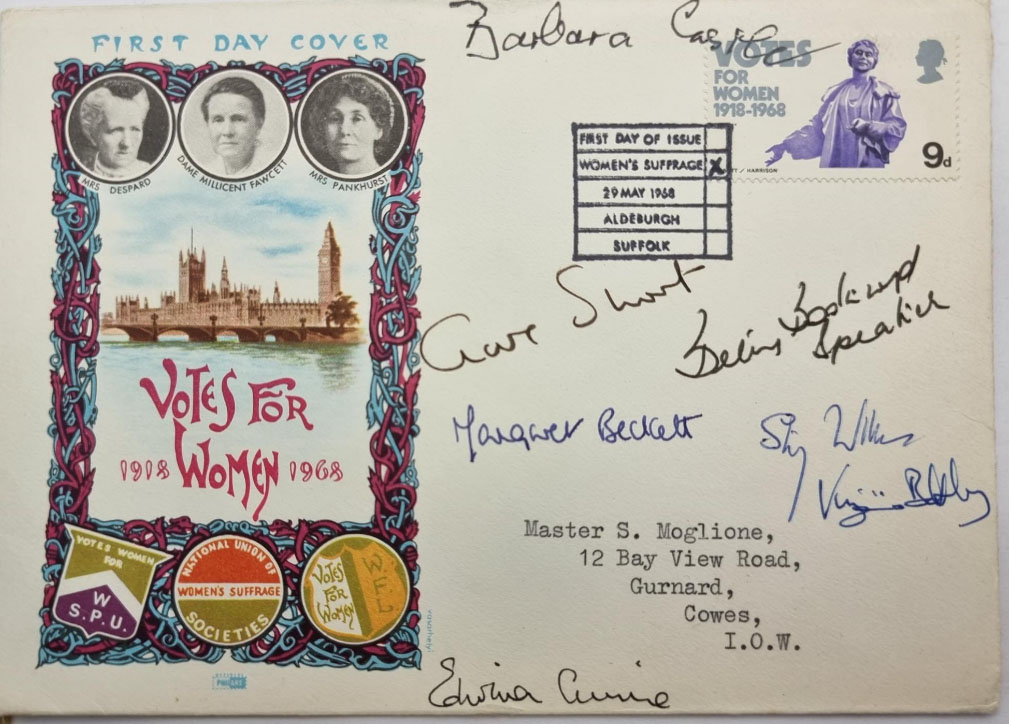 FIRST DAY COVER
MRS DESPARD
DAME MILLICENT FAWCETT
MRS PANKHURST
VOTES FOR
WOMEN
1918 1968
VOTES WOMEN
FOR
W
S.P.U.
NATIONAL UNION OF
WOMEN'S SUFFRAGE
SOCIETIES
VOTES
FOR
WOMEN
WFL
Barbara Castle
VOTES
FOR
WOMEN
1918-1968
9d
/ HARRISON
FIRST DAY OF ISSUE
WOMEN'S SUFFRAGE X
29 MAY 1968
ALDEBURGH
SUFFOLK
Clare Short
Betty Boothroyd
Speaker
Margaret Beckett
Shirley Williams
Virginia Bottomley
Master S. Moglione,
12 Bay View Road,
Gurnard,
Cowes,
I.O.W.
Edwina Currie